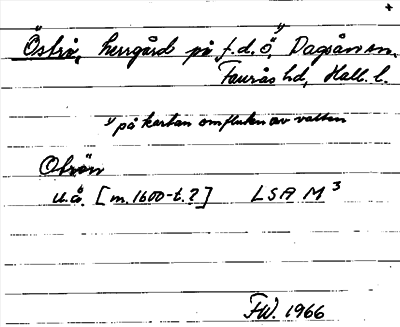 Östrå, herrgård på f.d. ö,¹⁾ Dagsås sn.
Faurås hd, Hall. l.
¹⁾ på kartan omfluten av vatten
Obrön
u.å. [m. 1600-t.?] LSA M³
FW. 1966